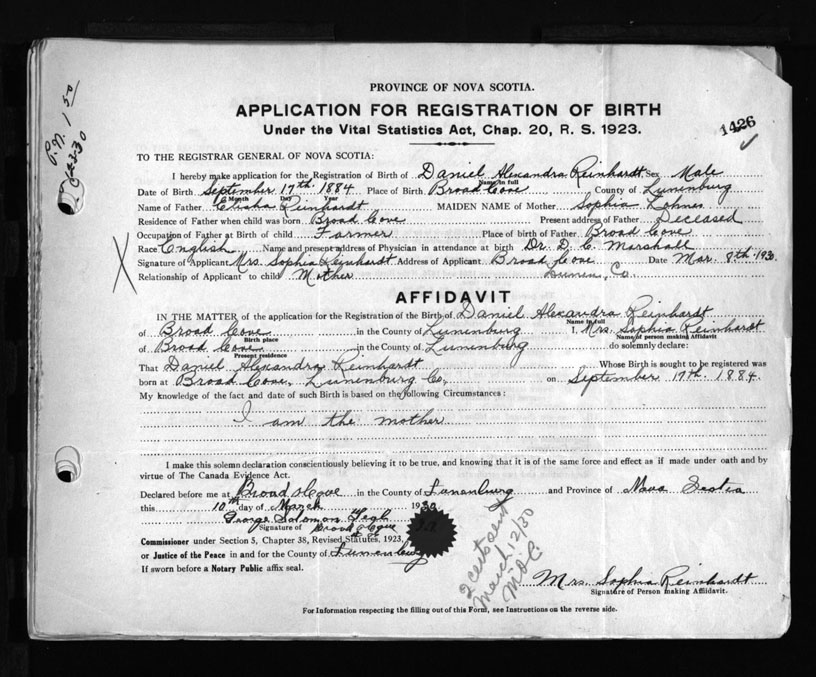 P.N. 1 50
PROVINCE OF NOVA SCOTIA.
APPLICATION FOR REGISTRATION OF BIRTH
Under the Vital Statistics Act, Chap. 20, R. S. 1923.
1426
TO THE REGISTRAR GENERAL OF NOVA SCOTIA:
I hereby make application for the Registration of Birth of Daniel Alexandra Reinhardt Sex Male
Name in full
Date of Birth September 17th. 1884 Place of Birth Broad Cove County of Lunenburg
Month Day Year
Name of Father Elisha Reinhardt MAIDEN NAME of Mother Sophia Lohnes
Residence of Father when child was born Broad Cove Present address of Father Deceased
Occupation of Father at Birth of child Farmer Place of birth of Father Broad Cove
Race English Name and present address of Physician in attendance at birth Dr. D. C. Marshall
Signature of Applicant Mrs. Sophia Reinhardt Address of Applicant Broad Cove Date Mar. 8th. 1930
Relationship of Applicant to child Mother Lunen. Co.
AFFIDAVIT
IN THE MATTER of the application for the Registration of the Birth of Daniel Alexandra Reinhardt
Name in full
of Broad Cove in the County of Lunenburg I, Mrs. Sophia Reinhardt
Birth place Name of person making Affidavit
of Broad Cove in the County of Lunenburg do solemnly declare:
Present residence
That Daniel Alexandra Reinhardt Whose Birth is sought to be registered was
born at Broad Cove, Lunenburg Co, on September 17th. 1884.
My knowledge of the fact and date of such Birth is based on the following Circumstances:
I am the mother
I make this solemn declaration conscientiously believing it to be true, and knowing that it is of the same force and effect as if made under oath and by
virtue of The Canada Evidence Act.
Declared before me at Broad Cove in the County of Lunenburg and Province of Nova Scotia
this 10th day of March 1930
George Solomon
Signature of Broad Cove
Commissioner under Section 5, Chapter 38, Revised Statutes, 1923,
or Justice of the Peace in and for the County of Lunenburg
If sworn before a Notary Public affix seal.
2 certs sent
March 12/30
M.D.C.
Mrs. Sophia Reinhardt
Signature of Person making Affidavit.
For Information respecting the filling out of this Form, see Instructions on the reverse side.